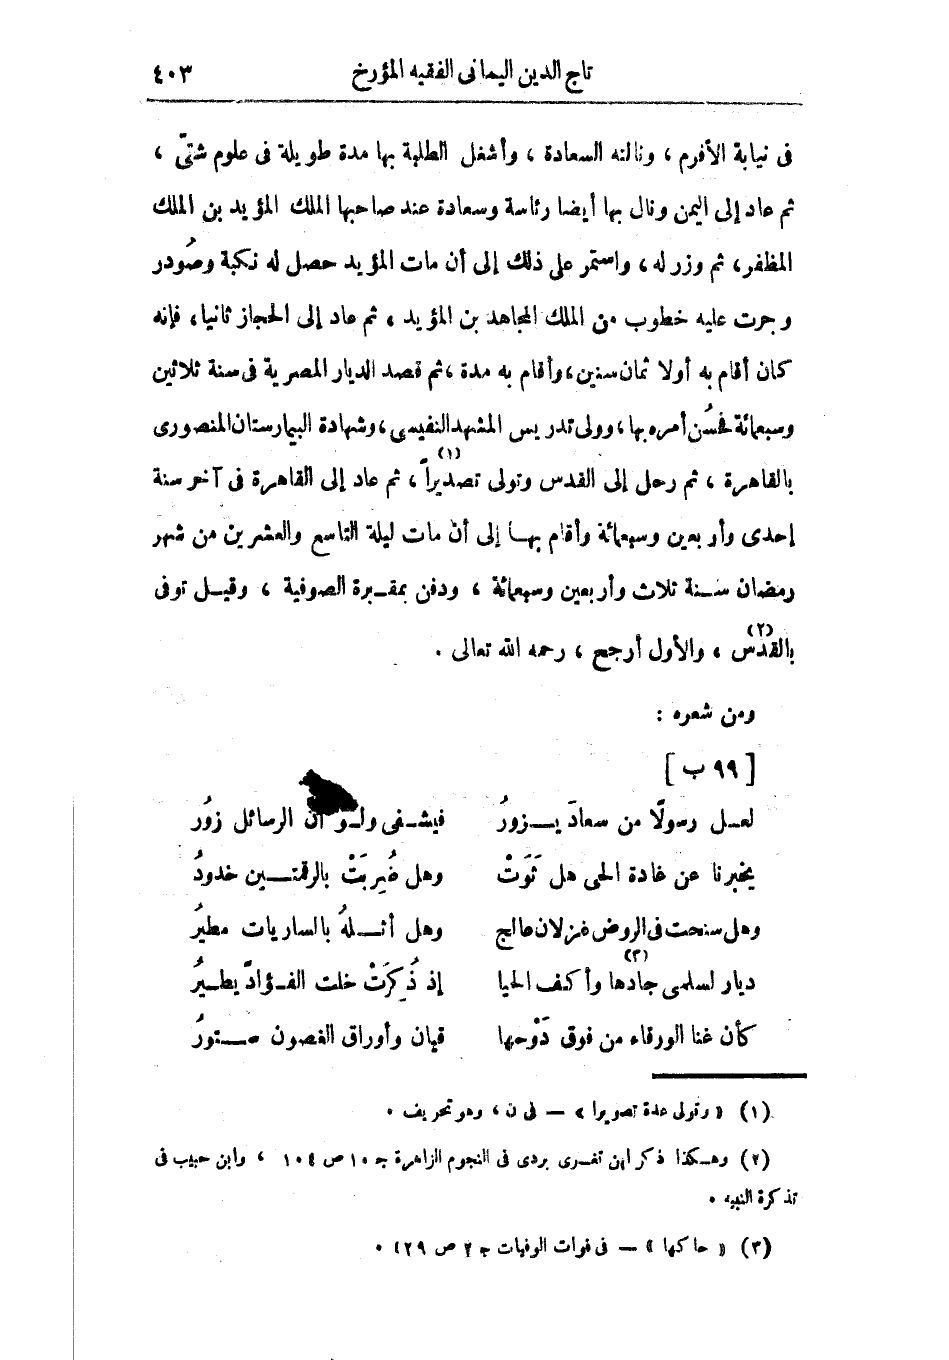 تاج الدين اليمانى الفقيه المؤرخ ٤٠٣
فى نيابة الأفرم ، ونالته السعادة ، وأشغل الطلبة بها مدة طويلة فى علوم شتّى ،
ثم عاد إلى اليمن ونال بها أيضا رئاسة وسعادة عند صاحبها الملك المؤيد بن الملك
المظفر، ثم وزر له ، واستمر على ذلك إلى أن مات المؤيد حصل له نكبة وصُودر
وجرت عليه خطوب من الملك المجاهد بن المؤيد ، ثم عاد إلى الحجاز ثانيا ، فإنه
كان أقام به أولا ثمان سنين ، وأقام به مدة ، ثم قصد الديار المصرية فى سنة ثلاثين
وسبعمائة فحسُن أمره بها ، وولى تدريس المشهد النفيسى ، وشهادة البيمارستان المنصورى
بالقاهرة ، ثم رحل إلى القدس وتولى تصديراً (١) ، ثم عاد إلى القاهرة فى آخر سنة
إحدى وأربعين وسبعمائة وأقام بهـا إلى أن مات ليلة التاسع والعشرين من شهر
رمضان سـنة ثلاث وأربعين وسبعمائة ، ودفن بمقـبرة الصوفية ، وقيـل توفى
بالقدس (٢) ، والأول أرجح ، رحمه الله تعالى .
ومن شعره :
[ ٩٩ ب ]
لعـل رسولًا من سعادَ يـزورُ فيشـفى ولـو أن الرسائل زورُ
يخبرنا عن غادة الحى هل ثَوَتْ وهل ضُربَتْ بالرقمتـين خدورُ
وهل سنحت فى الروض غزلان عالج وهل أثـلهُ بالساريات مطيرُ
ديار لسلمى جادها (٣) وأكف الحيا إذ ذُكرَتْ خلت الفـؤادَ يطـيرُ
كأن غنا الورقاء من فوق دَوْحها قيان وأوراق الغصون سـتورُ
(١) « وتولى عدة تصويرا » — فى ن ، وهو تحريف .
(٢) وهـكذا ذكر ابن تغـرى بردى فى النجوم الزاهرة جـ ١٠ ص ١٠٤ ، وابن حبيب فى
تذكرة النبيه .
(٣) « حاكها » — فى فوات الوفيات جـ ٢ ص ٢٩٤ .